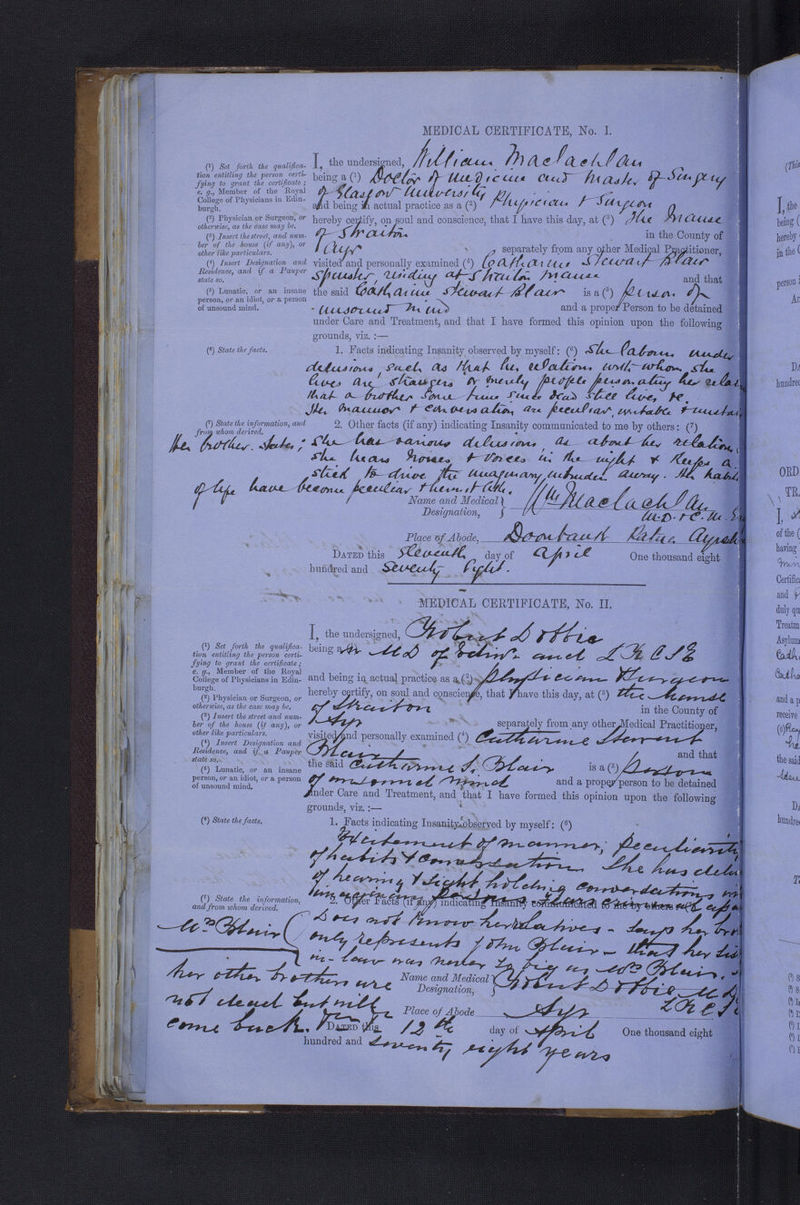 MEDICAL CERTIFICATE, No. I.
(1) Set forth the qualifica-
tion entitling the person certi-
fying to grant the certificate;
e. g., Member of the Royal
College of Physicians in Edin-
burgh.
(2) Physician or Surgeon, or
otherwise, as the case may be.
(3) Insert the street, and num-
ber of the house (if any), or
other like particulars.
(4) Insert Designation and
Residence, and if a Pauper
state so.
(5) Lunatic, or an insane
person, or an idiot, or a person
of unsound mind.
I, the undersigned, William Maclachlan
being a (1) Doctor of Medicine and Master of Surgery
of Glasgow University
and being in actual practice as a (2) Physician & Surgeon
hereby certify, on soul and conscience, that I have this day, at (3) The Manse
of Straiton in the County of
Ayr separately from any other Medical Practitioner,
visited and personally examined (4) Catharine Stewart Blair
Spinster, residing at Straiton Manse and that
the said Catharine Stewart Blair is a (5) person of
unsound mind and a proper Person to be detained
under Care and Treatment, and that I have formed this opinion upon the following
grounds, viz. :—
(6) State the facts.
1. Facts indicating Insanity observed by myself: (6) She labours under
delusions, such as that her relations with whom she
lives are strangers or merely people personating her
that a brother some time since dead still lives &c.
Her manner & conversation are peculiar, irritable &
(7) State the information, and
from whom derived.
2. Other facts (if any) indicating Insanity communicated to me by others: (7)
Her brother states; She has various delusions as about her relations
She hears noises & voices in the night & keeps a
stick to drive the imaginary intruder away. Her habits
of life have become peculiar &
Name and Medical Designation, Wm Maclachlan
M.D. & C.M.
Place of Abode, Doonbank
DATED this Eleventh day of April One thousand eight
hundred and Seventy Eight.
MEDICAL CERTIFICATE, No. II.
(1) Set forth the qualifica-
tion entitling the person certi-
fying to grant the certificate;
e. g., Member of the Royal
College of Physicians in Edin-
burgh.
(2) Physician or Surgeon, or
otherwise, as the case may be.
(3) Insert the street and num-
ber of the house (if any), or
other like particulars.
(4) Insert Designation and
Residence, and if a Pauper
state so.
(5) Lunatic, or an insane
person, or an idiot, or a person
of unsound mind.
I, the undersigned, Robert Dobbie
being M D of Edinr. and L R C S E
and being in actual practice as a (2) Physician & Surgeon
hereby certify, on soul and conscience, that I have this day, at (3) the Manse
of Straiton in the County of
Ayr separately from any other Medical Practitioner,
visited and personally examined (4) Catharine Stewart
Blair and that
the said Catharine S. Blair is a (5) Person
of unsound mind and a proper person to be detained
under Care and Treatment, and that I have formed this opinion upon the following
grounds, viz. :—
(6) State the facts.
1. Facts indicating Insanity observed by myself: (6)
Excitement of manner, Peculiarity
of habits & conversation She has
of hearing & sight, holding conversations
imaginary
(7) State the information,
and from whom derived.
2. Other Facts (if any) indicating Insanity communicated to me by others: (7)
Mrs Blair Does not know her relatives - Says her
only represents John Blair - that her
in-law was never so big as Mrs Blair,
her other brothers are
not dead but will
come back.
Name and Medical Designation, Robert Dobbie M D
L R C S
Place of Abode Ayr
DATED this 12th day of April One thousand eight
hundred and Seventy eight years